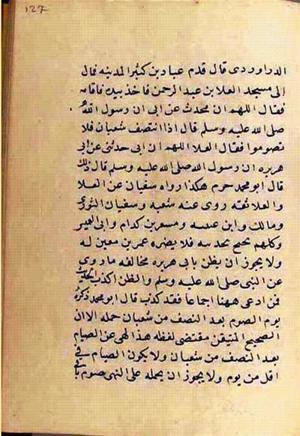 ١٢٧
الدراوردى قال قدم عباد بن كثير المدينة فمال
الى مسجد العلا بن عبد الرحمن فاخذ بيده فاقامه
فقال اللهم ان محدث عن ابى ان رسول الله
صلى الله عليه وسلم قال اذا انتصف شعبان فلا
تصوموا فقال العلا اللهم ان ابى حدثنى عن ابى
هريره ان رسول الله صلى الله عليه وسلم قال ذلك
قال ابو محمد حزم هكذا رواه سفيان عن العلا
والعلا ثقه روى عنه شعبه وسفيان الثورى
ومالك وابن عيينه ومسعر بن كدام وابى العميس
وكلهم يحتج بحديثه فلا يضره غمز بن معين له
ولا يجوز ان يظن بابى هريره مخالفه ما روى
عن النبى صلى الله عليه وسلم والظن اكذب الحديث
فمن ادعى ههنا اجماعا فقد كذب قال ابو محمد ذكره
يوم الصوم بعد النصف من شعبان جمله الا ان
الصحيح المتيقن مقتضى لفظه هذا النهى عن الصيام
بعد النصف من شعبان ولا يكون الصيام فى
اقل من يوم ولا يجوز ان يحمله على النهى صوم